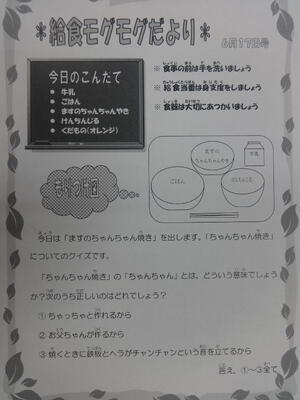 *給食モグモグだより*
6月17日号
今日のこんだて
● 牛乳
● ごはん
● ますのちゃんちゃんやき
● けんちんじる
● くだもの(オレンジ)
※ 食事の前は手を洗いましょう
※ 給食当番は身支度をしましょう
※ 食器は大切にあつかいましょう
もりつけ図
牛乳
ますの
ちゃんちゃんやき
ごはん
けんちんじる
今日は「ますのちゃんちゃん焼き」を出します。「ちゃんちゃん焼き」
についてのクイズです。
「ちゃんちゃん焼き」の「ちゃんちゃん」とは、どういう意味でしょう
か?次のうち正しいのはどれでしょう?
① ちゃっちゃと作れるから
② お父ちゃんが作るから
③ 焼くときに鉄板とヘラがチャンチャンという音を立てるから
答え、①~③全て